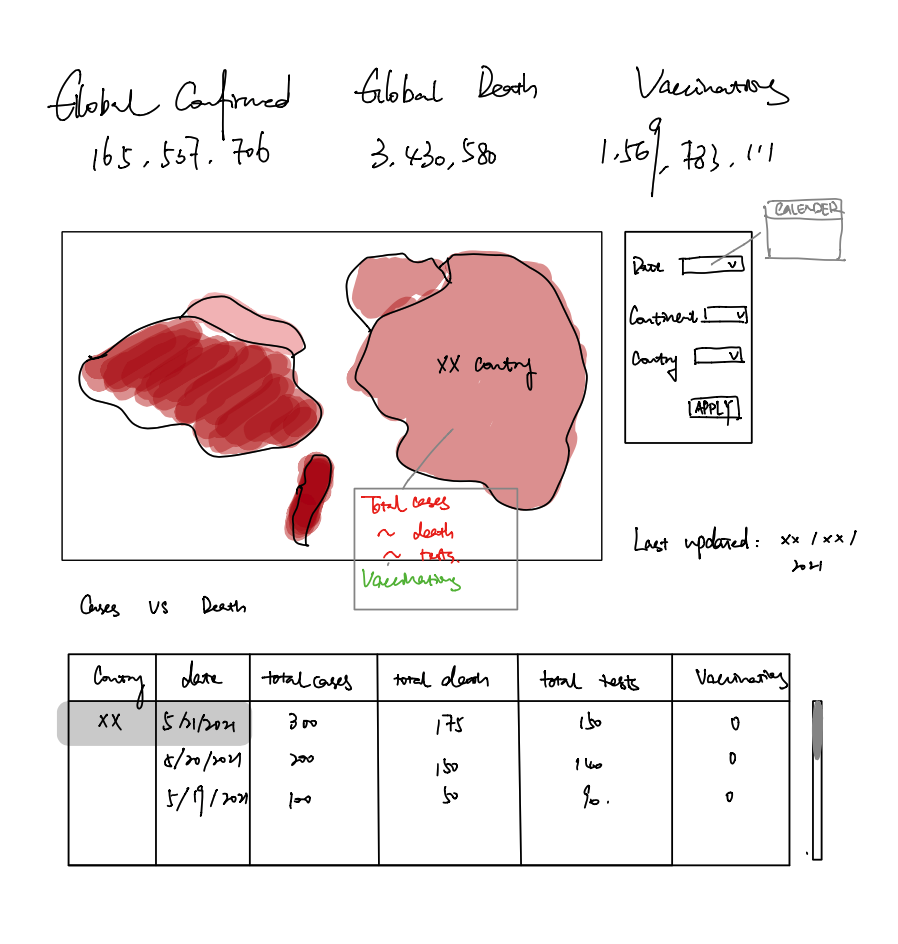 Global Confirmed
165,557,706
Global Death
3,430,580
Vaccinations
1,569,783,111
CALENDER
Date
Continent
Country
APPLY
XX Country
Total cases
~ death
~ tests.
Vaccinations
Last updated: xx/xx/
2021
Cases VS Death
Country date total cases total death total tests Vaccinations
XX 5/21/2021 300 175 150 0
5/20/2021 200 150 140 0
5/19/2021 100 50 90. 0